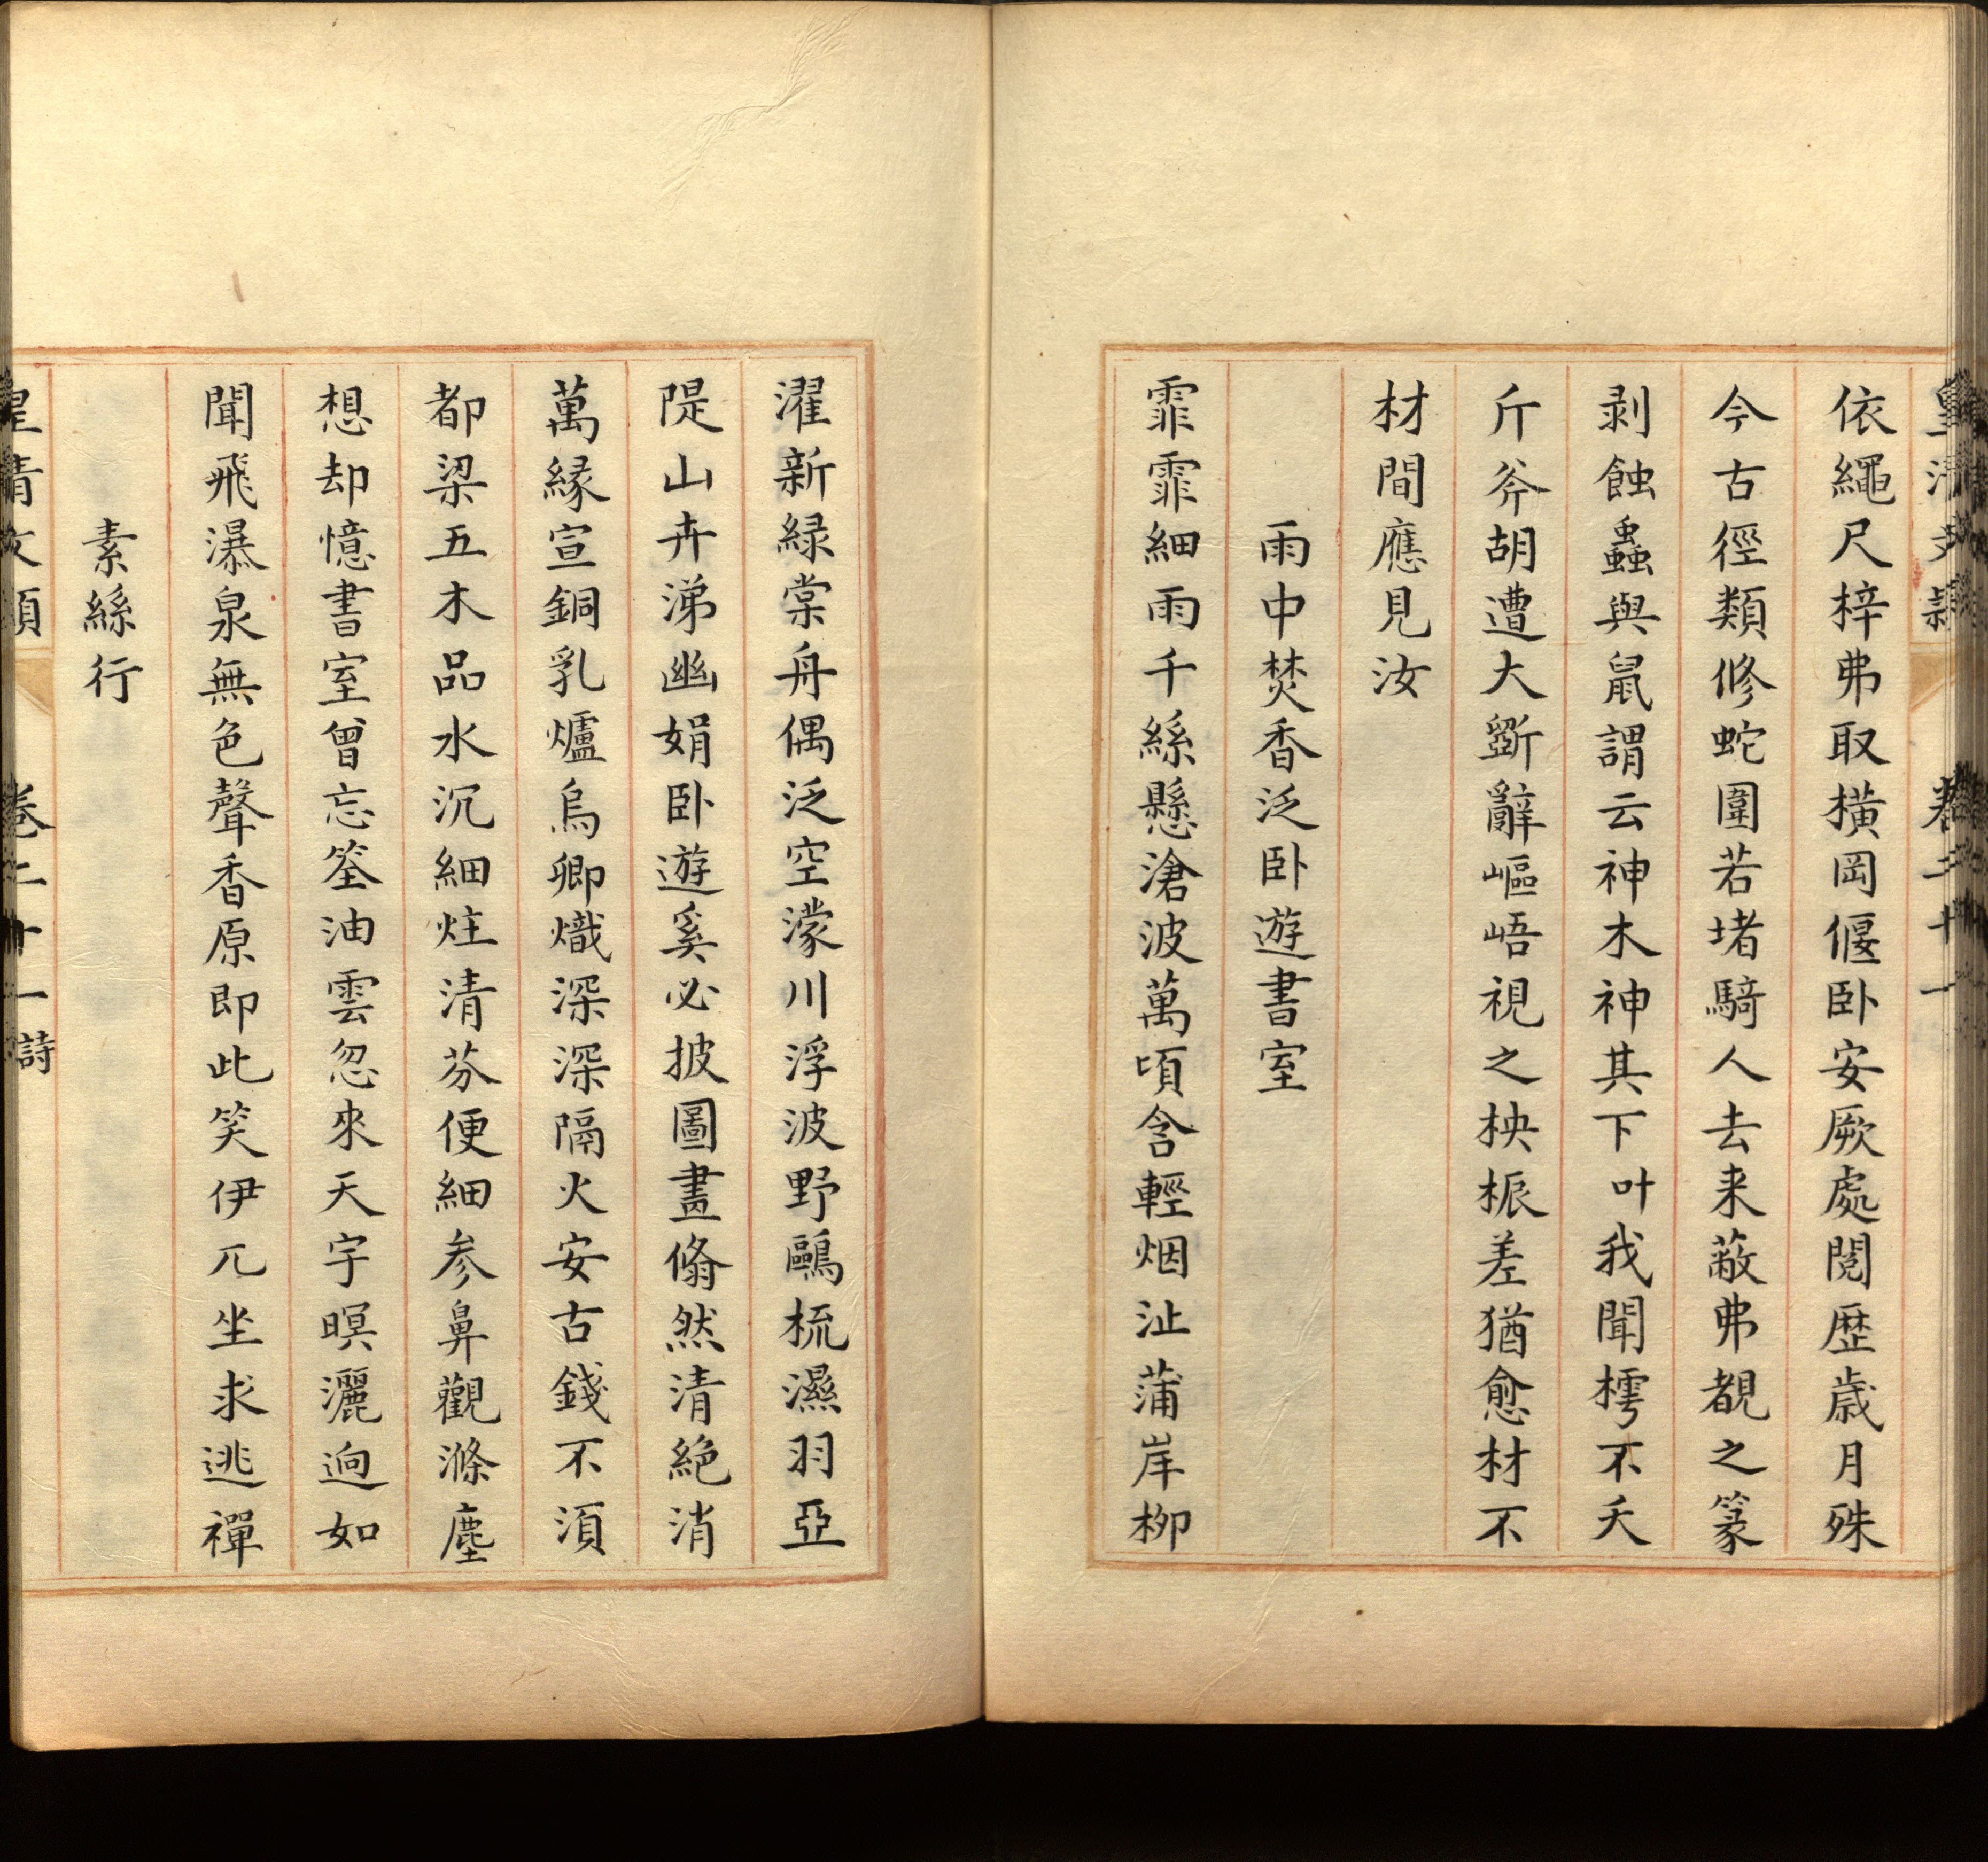 皇清文穎 卷二十一
依繩尺梓弗取橫岡偃卧安厥處閱歴歲月殊
今古徑類修蛇圍若堵騎人去来蔽弗覩之篆
剥蝕蟲與鼠謂云神木神其下叶我聞樗不夭
斤斧胡遭大斵辭嶇峿視之柍桭差猶愈材不
材間應見汝
雨中焚香泛卧遊書室
霏霏細雨千絲懸滄波萬頃含輕烟沚蒲岸栁
濯新緑棠舟偶泛空濛川浮波野鷗梳濕羽亞
隄山卉涕幽娟卧遊奚必披圖畫翛然清絶消
萬縁宣銅乳爐烏卿熾深深隔火安古錢不須
都梁五木品水沉細炷清芬便細参鼻觀滌塵
想却憶書室曾忘筌油雲忽來天宇暝灑逈如
聞飛瀑泉無色聲香原即此笑伊兀坐求逃禪
素絲行
皇清文穎 卷二十一 詩